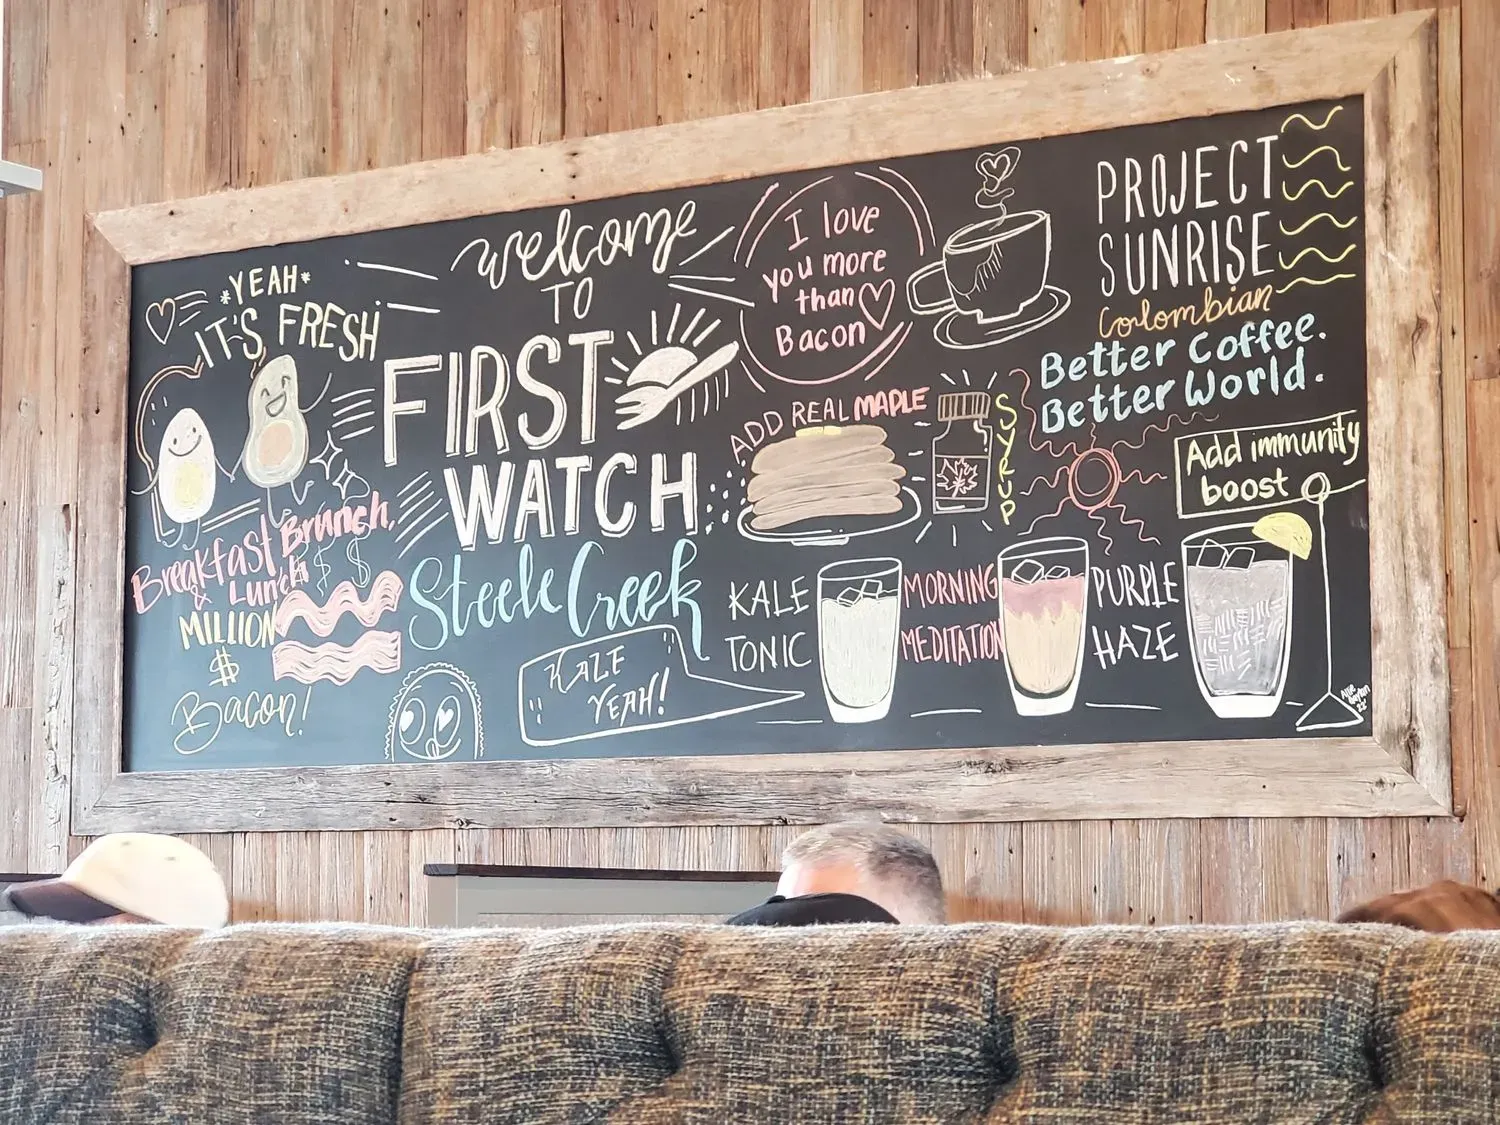 *YEAH*
IT'S FRESH
Breakfast, Brunch,
& Lunch
$ $
MILLION
$
Bacon!
Welcome
TO
FIRST
WATCH
Steele Creek
KALE
YEAH!
I love
you more
than
Bacon
ADD REAL MAPLE
SYRUP
PROJECT
SUNRISE
Colombian
Better Coffee.
Better World.
Add immunity
boost
KALE
TONIC
MORNING
MEDITATION
PURPLE
HAZE